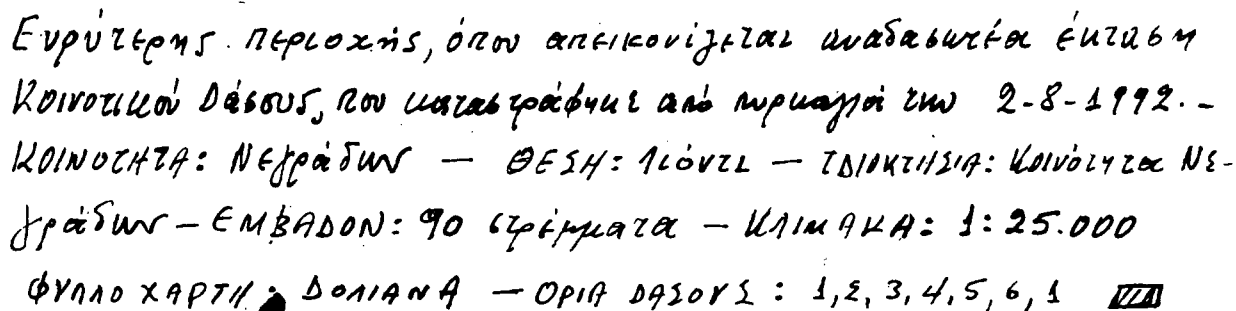 Ευρύτερης περιοχής, όπου απεικονίζεται αναδασωτέα έκταση
Κοινοτικού Δάσους, που καταστράφηκε από πυρκαγιά την 2-8-1992.-
ΚΟΙΝΟΤΗΤΑ: Νεγράδων — ΘΕΣΗ: Λιόντι — ΙΔΙΟΚΤΗΣΙΑ: Κοινότητα Νε-
γράδων — ΕΜΒΑΔΟΝ: 90 στρέμματα — ΚΛΙΜΑΚΑ: 1:25.000
ΦΥΛΛΟ ΧΑΡΤΗ: ΔΟΛΙΑΝΑ — ΟΡΙΑ ΔΑΣΟΥΣ: 1,2,3,4,5,6,1